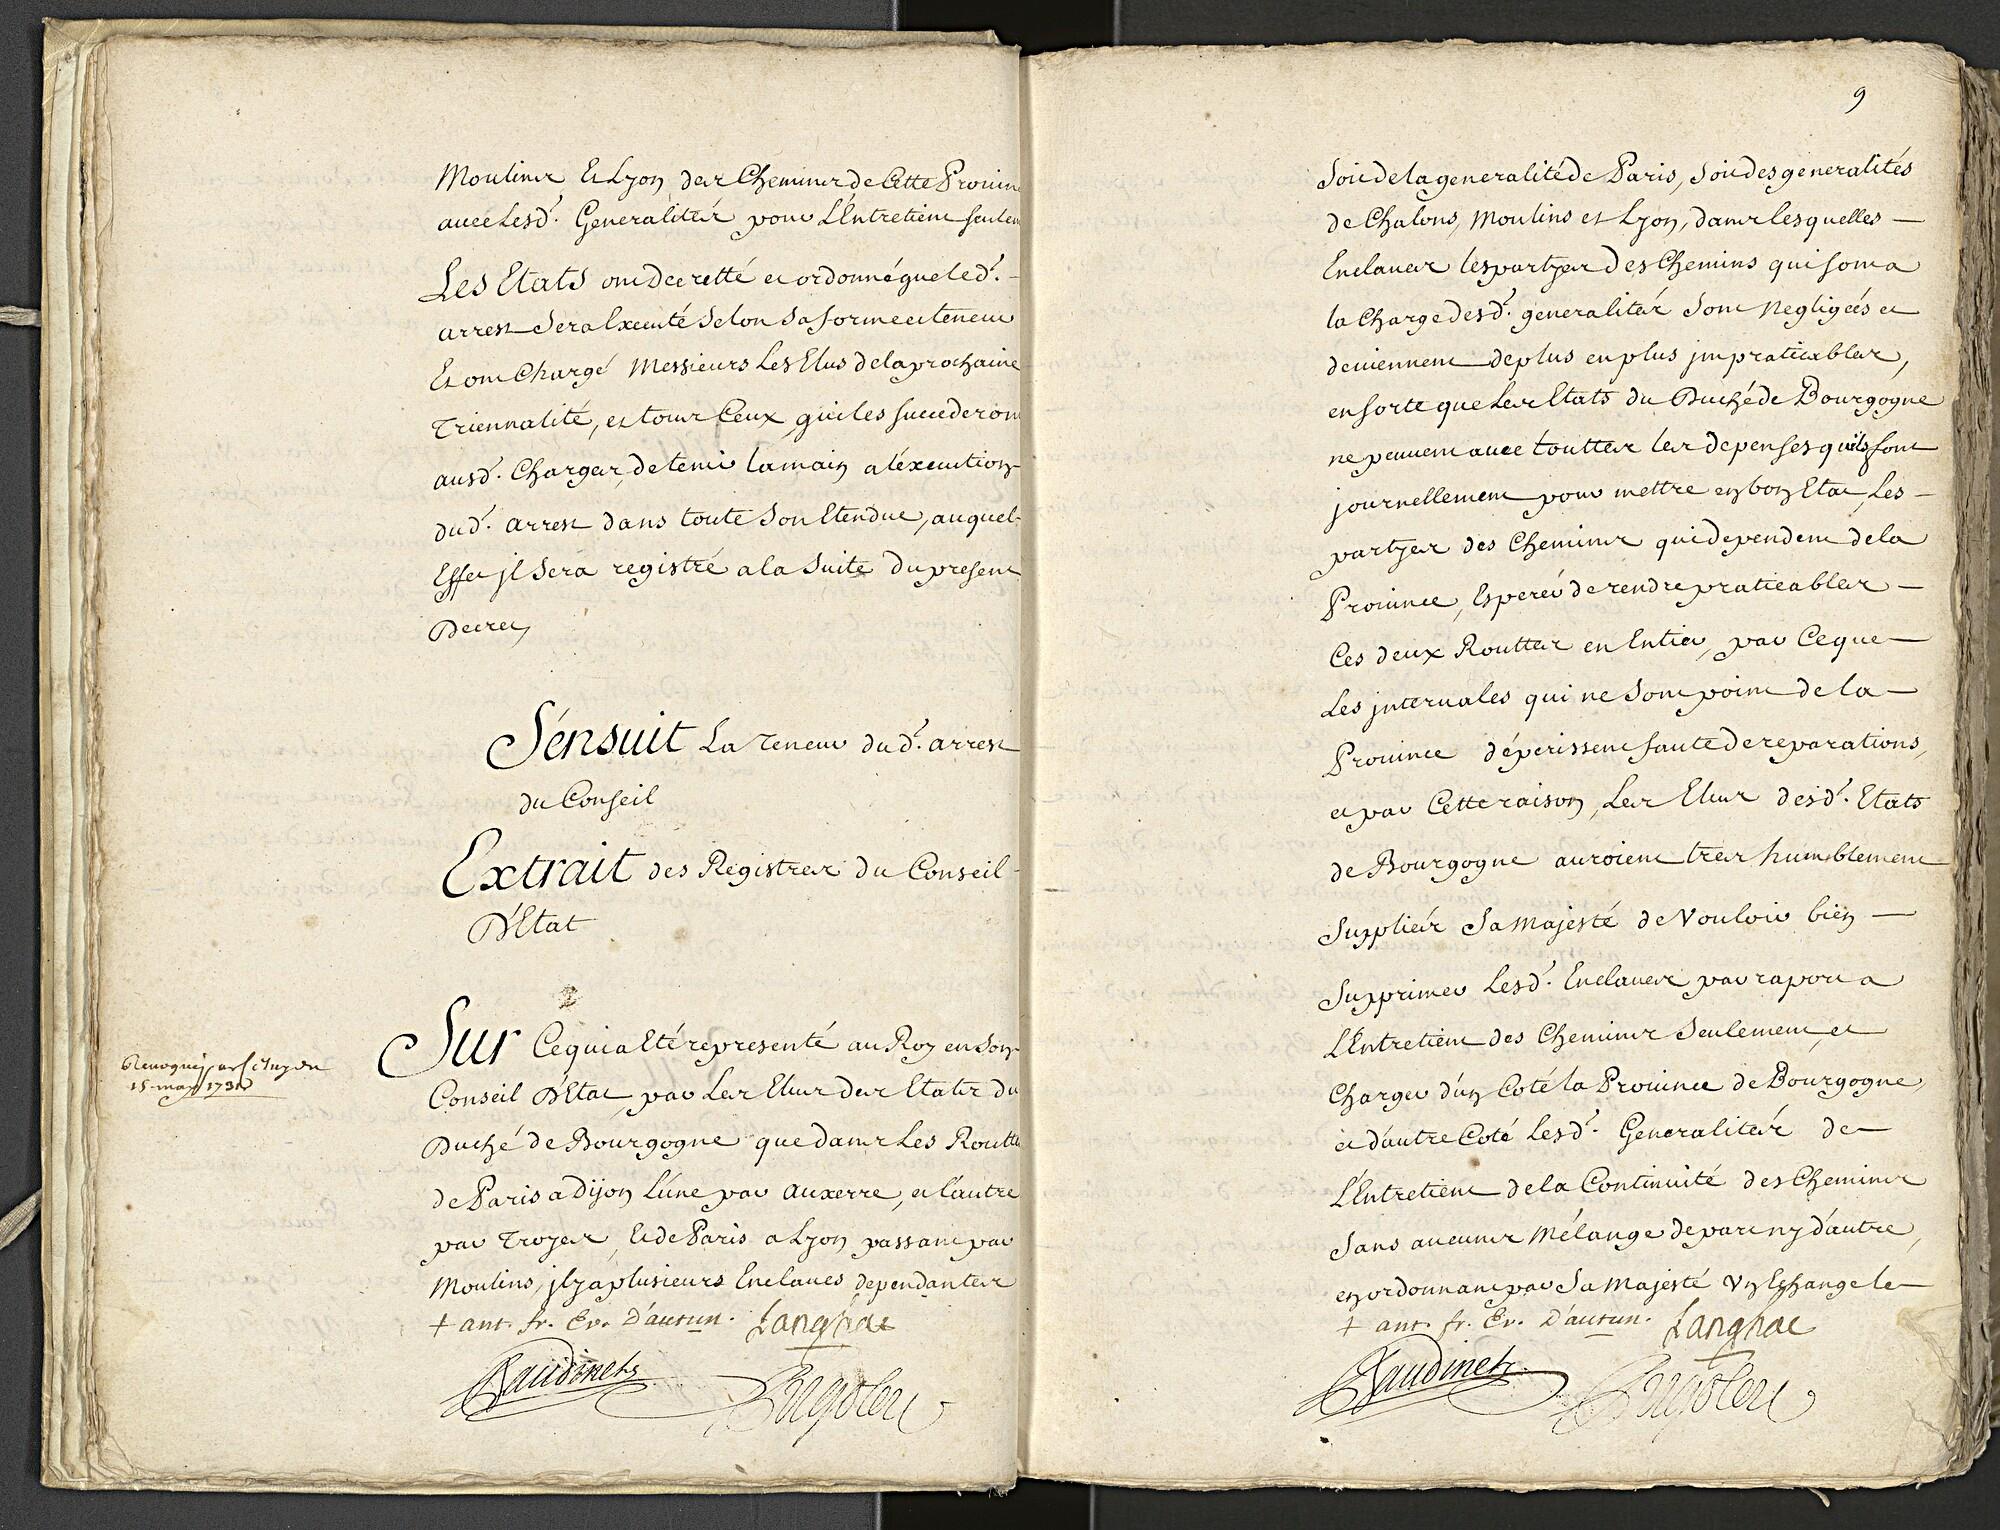 Moulins et Lyon des Chemins de Cette Provin
avec Lesd. Generalités pour L'Entretient seulem
Les Etats ont decretté et ordonné que led.
arrest sera Executé selon sa forme et teneur
Et ont Chargé Messieurs Les Elus de la prochaine
Triennalité, et tous Ceux qui les succederon
ausd. Charges, de tenir la main a l'éxecution
dud. arrest dans toute son Etendue, auquel
Effet jl sera registré a la suite du present
Decret,
S'ensuit La Teneur dud. arrest
du Conseil
Extrait des Registres du Conseil
D'Etat
Sur Ce qui a Eté representé au Roy en son
Conseil D'Etat par Les Elus des Etats du
Duché de Bourgogne que dans Les Routte
de Paris a Dijon L'une par Auxerre, et l'autre
par Troyes, Et de Paris a Lyon passant par
Moulins, jl y a plusieurs Enclaves dependantes
+ ant. fr. Ev. D'autun. Langhac
Baudinet
Revoqué par
15 may 1730
9
soit de la generalité de Paris, soit des generalités
de Chalons, Moulins et Lyon, dans lesquelles
Enclaves les partyes des Chemins qui sont a
la Charge desd. generalités sont negligées et
deviennent de plus en plus jmpraticables,
en sorte que Les Etats du Duché de Bourgogne
ne peuvent avec touttes les depenses qu'ils font
journellement pour mettre en bon Etat, Les
partyes des Chemins qui dependent de la
Province, Esperer de rendre praticables
Ces deux Routtes en Entier, par Ce que
Les jntervales qui ne sont point de la
Province déperissent faute de reparations,
et par Cette raison, Les Elus desd. Etats
de Bourgogne auroient tres humblement
supplié sa Majesté de Vouloir bien
supprimer Lesd. Enclaves par raport a
L'Entretient des Chemins seulement, et
Charger d'un Coté la Province de Bourgogne,
et d'autre Coté Lesd. Generalités de
L'Entretient de la Continuité des Chemins
sans aucuns Mélange de part ny d'autre,
en ordonnant par sa Majesté Un Eschange le
+ ant. fr. Ev. D'autun. Langhac
Baudinet